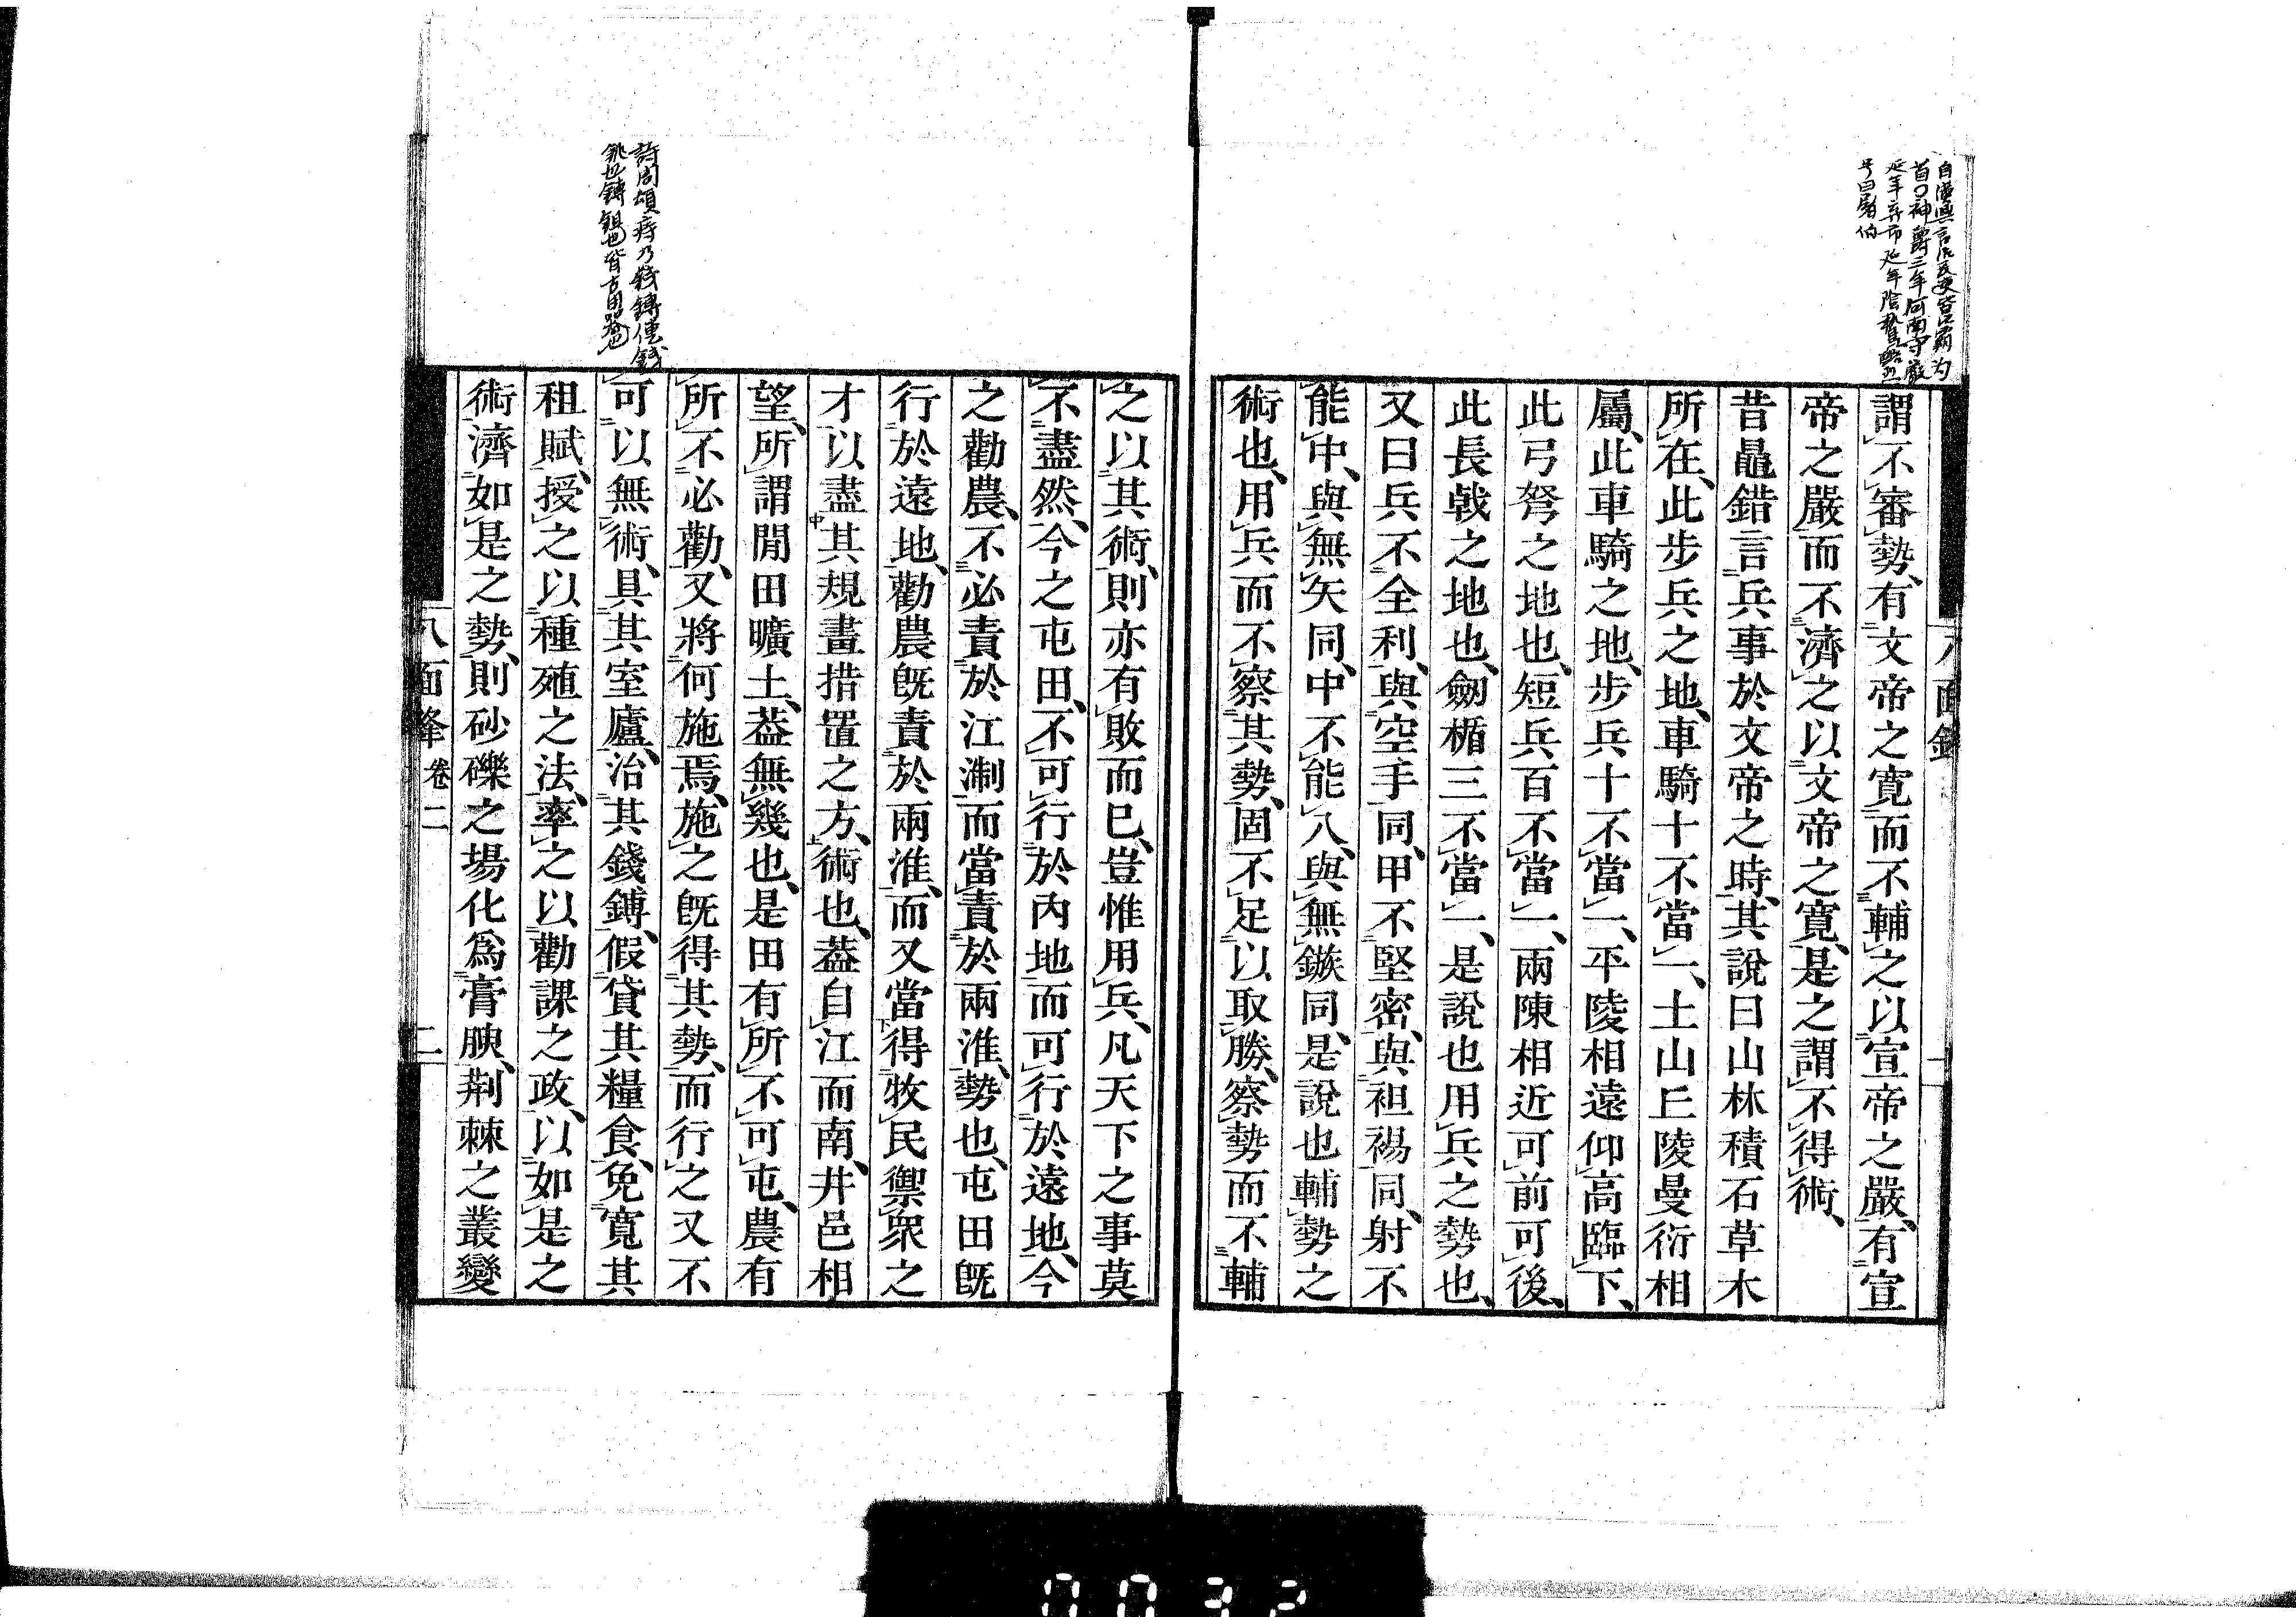 自漢興言治民吏皆以霸為
首○神爵三年河南守嚴
延年弃市延年陰鷙酷烈
号曰屠伯
謂不審勢有文帝之寬而不輔之以宣帝之嚴有宣
帝之嚴而不濟之以文帝之寬是之謂不得術
昔鼂錯言兵事於文帝之時其說曰山林積石草木
所在此步兵之地車騎十不當一土山丘陵曼衍相
屬此車騎之地步兵十不當一平陵相遠仰高臨下
此弓弩之地也短兵百不當一兩陳相近可前可後
此長戟之地也劒楯三不當一是說也用兵之勢也
又曰兵不全利與空手同甲不堅密與袒裼同射不
能中與無矢同中不能入與無鏃同是說也輔勢之
術也用兵而不察其勢固不足以取勝察勢而不輔
之以其術則亦有敗而已豈惟用兵凡天下之事莫
不盡然今之屯田不可行於內地而可行於遠地今
之勸農不必責於江淛而當責於兩淮勢也屯田既
行於遠地勸農既責於兩淮而又當得牧民禦衆之
才以盡其規畫措置之方術也葢自江而南井邑相
望所謂閒田曠土葢無幾也是田有所不可屯農有
所不必勸又將何施焉施之既得其勢而行之又不
可以無術具其室廬治其錢鎛假貸其糧食免寬其
租賦授之以種殖之法率之以勸課之政以如是之
術濟如是之勢則砂礫之場化為膏腴荆棘之叢變
詩周頌庤乃錢鎛傳錢
銚也鎛鉏也皆古田器也
八面鋒 卷二 二